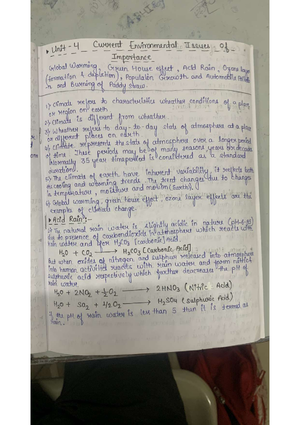 Unit - 4 Current Environmental Issues of
Importance
Global Warming, Green House effect, Acid Rain, Ozone layer
(formation & depletion), Population Growth and Automobile
and burning of Paddy straw.
1) Climate refers to characteristics weather conditions of a place
or region on earth
2) Climate is different from weather
refers to day-to-day state of atmosphere at a place
different places on earth
4) Climate represents the state of atmosphere over a longer period
of time. These periods may be of many
35 years timeperiod is considered as a standard
duration.
5) The climate of earth have inherent variability, it reflects both
cooling and warming trends. The trend changes due to changes
in temperature, moisture and motion
6) Global warming, green house effect, ozone layer effects are the
examples of climate change.
Acid Rain:-
natural rain water is slightly acidic in nature
presence of carbondioxide in atmosphere which reacts with
rain water and form H₂CO₃ (carbonic) acid.
H₂O + CO₂ → H₂CO₃ (Carbonic Acid)
But when oxides of nitrogen and sulphur released into atmosphere
human activities reacts with rain water and form nitric &
sulphuric acid respectively which further decreases the pH of
rain water
H₂O + 2NO₂ + ½O₂ → 2HNO₃ (Nitric Acid)
H₂O + SO₂ + ½O₂ → H₂SO₄ (Sulphuric Acid)
If the pH of rain water is less than 5 then it is termed as